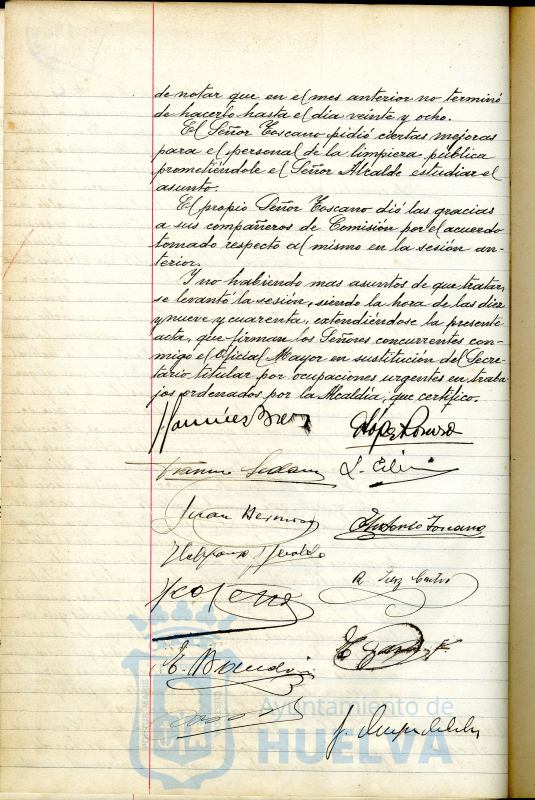 de notar que en el mes anterior no terminó
de hacerlo hasta el dia veinte y ocho.
El Señor Toscano pidió ciertas mejoras
para el personal de la limpieza pública
prometiéndole el Señor Alcalde estudiar el
asunto.
El propio Señor Toscano dió las gracias
a sus compañeros de Comisión por el acuerdo
tomado respecto al mismo en la sesión an-
terior.
Y no habiendo mas asuntos de que tratar,
se levantó la sesión, siendo la hora de las diez
y nueve y cuarenta, extendiéndose la presente
acta, que firman los Señores concurrentes con-
migo el Oficial Mayor en sustitución del Secre-
tario titular por ocupaciones urgentes en traba-
jos ordenados por la Alcaldía, que certifico.
Juan Bermúdez
Antonio Toscano
Ayuntamiento de
HUELVA